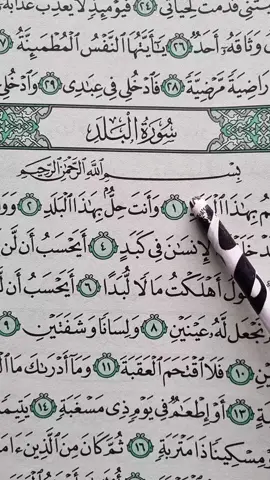 قَدَّمْتُ لِحَيَاتِى ٢٤ فَيَوْمَئِذٍ لَّا يُعَذِّبُ عَذَابَهُۥ
وَثَاقَهُۥٓ أَحَدٌ ٢٦ يَـٰٓأَيَّتُهَا ٱلنَّفْسُ ٱلْمُطْمَئِنَّةُ
رَاضِيَةً مَّرْضِيَّةً ٢٨ فَٱدْخُلِى فِى عِبَـٰدِى ٢٩ وَٱدْخُلِى
سُورَةُ ٱلْبَلَدِ
بِسْمِ ٱللَّهِ ٱلرَّحْمَـٰنِ ٱلرَّحِيمِ
بِهَـٰذَا ١ وَأَنتَ حِلٌّۢ بِهَـٰذَا ٱلْبَلَدِ ٢
ٱلْإِنسَـٰنَ فِى كَبَدٍ ٤ أَيَحْسَبُ أَن
أَهْلَكْتُ مَالًا لُّبَدًا ٦ أَيَحْسَبُ أَن
نَجْعَل لَّهُۥ عَيْنَيْنِ ٨ وَلِسَانًا وَشَفَتَيْنِ ٩
١٠ فَلَا ٱقْتَحَمَ ٱلْعَقَبَةَ ١١ وَمَآ أَدْرَىٰكَ مَا
١٣ أَوْ إِطْعَـٰمٌ فِى يَوْمٍ ذِى مَسْغَبَةٍ ١٤ يَتِيمًا
مِسْكِينًا ذَا مَتْرَبَةٍ ١٦ ثُمَّ كَانَ مِنَ ٱلَّذِينَ